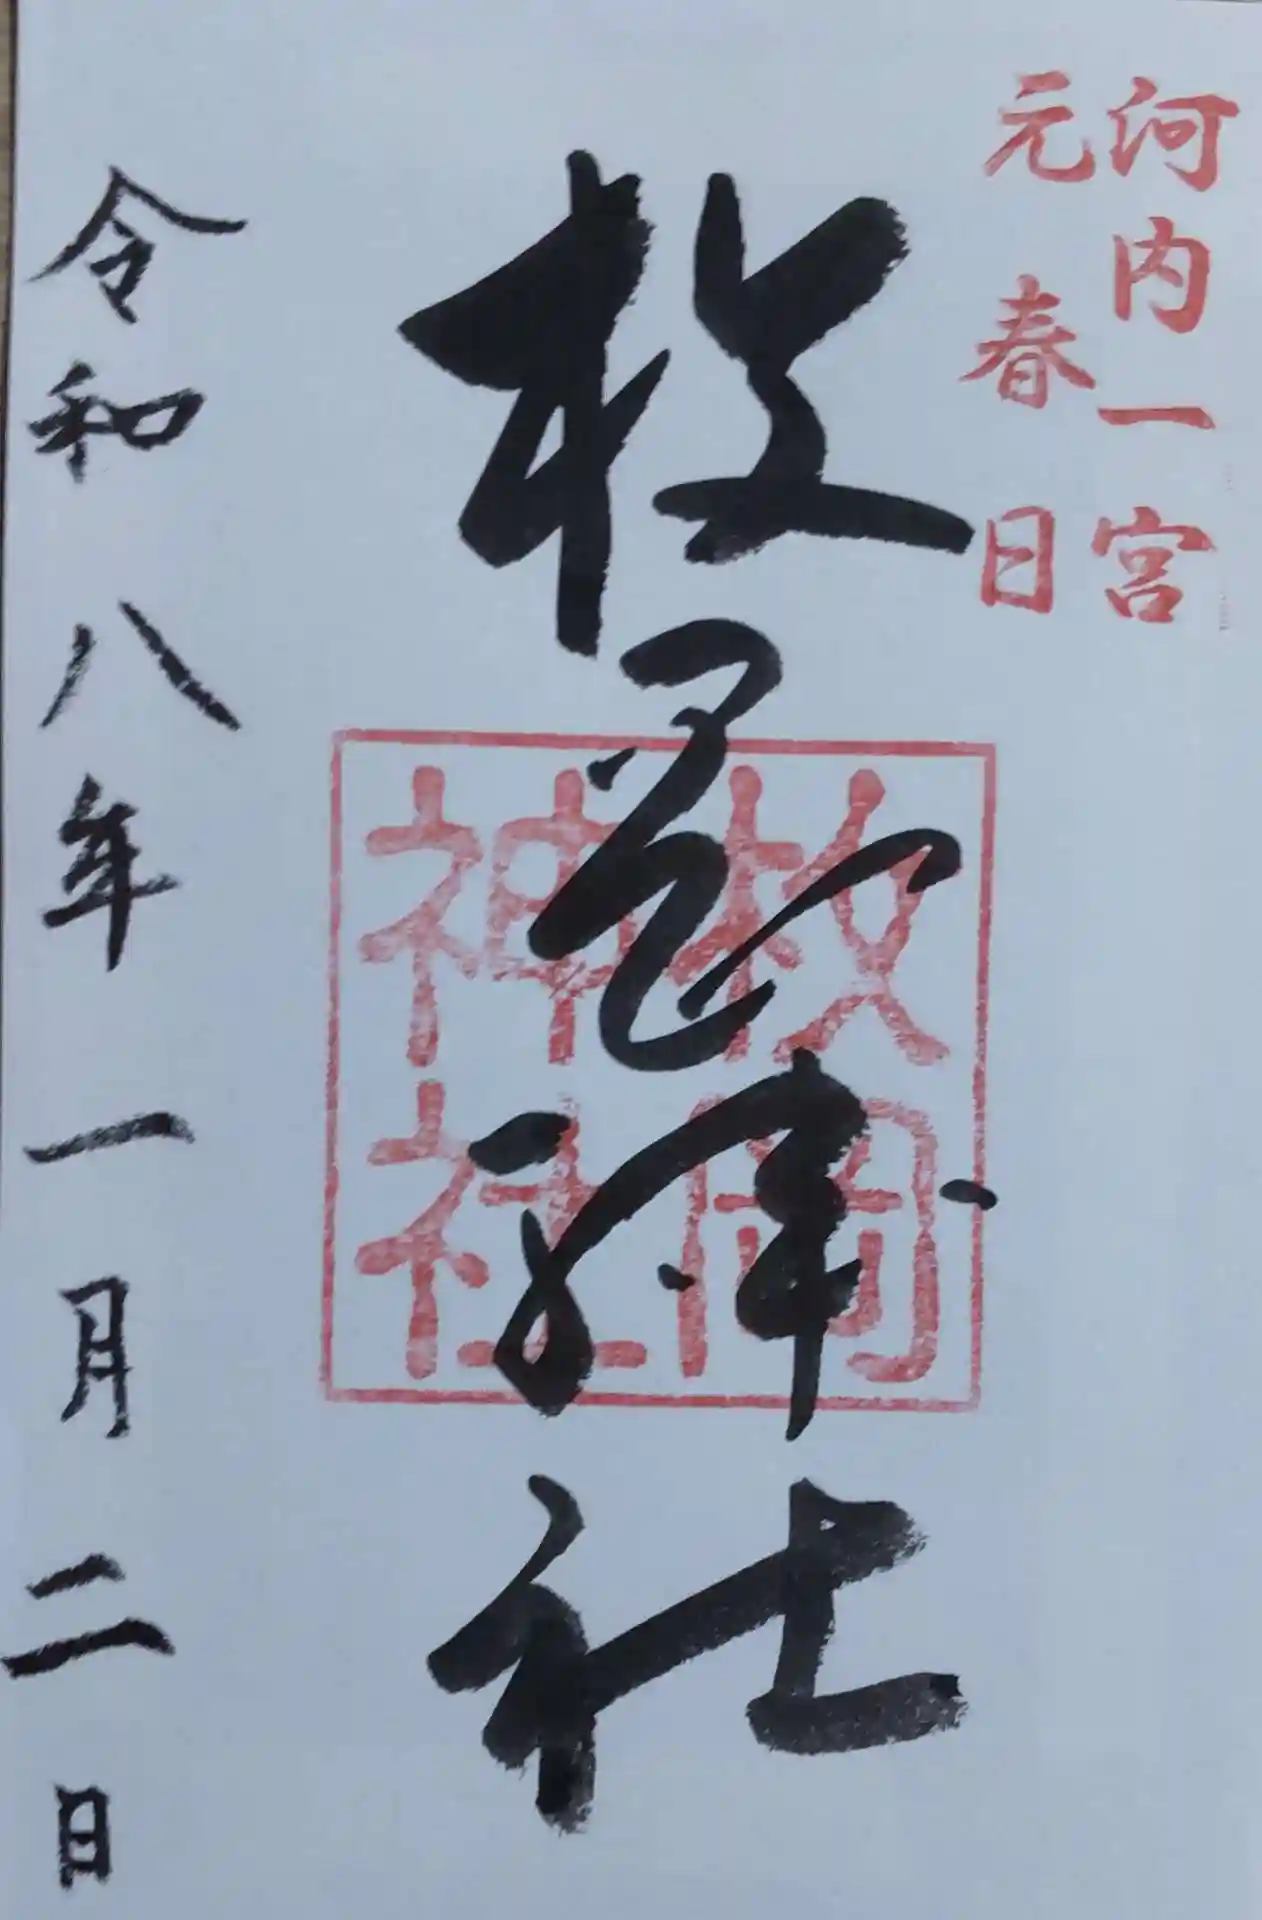 河内一宮
元春日
枚岡神社
枚岡
神社
令和八年一月二日